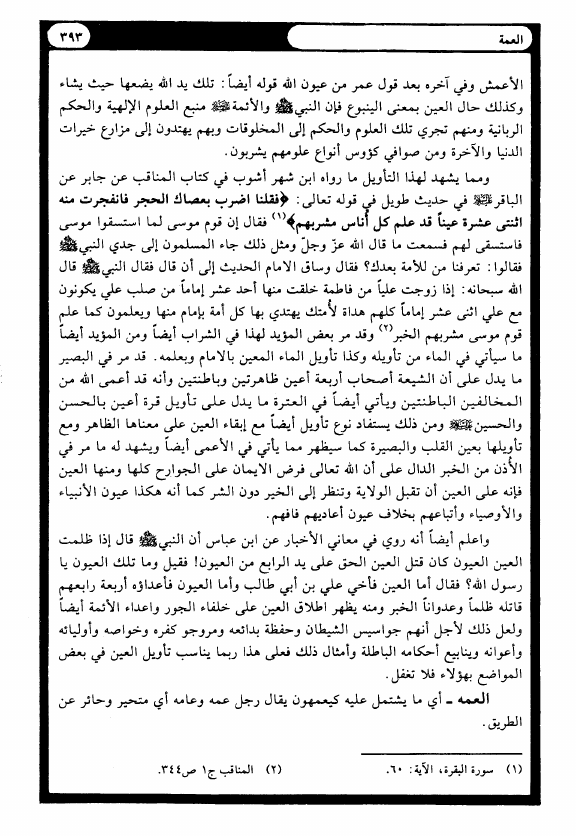 العمة
٣٩٣
الأعمش وفي آخره بعد قول عمر من عيون الله قوله أيضاً: تلك يد الله يضعها حيث يشاء
وكذلك حال العين بمعنى الينبوع فإن النبيﷺ والأئمة منبع العلوم الإلهية والحكم
الربانية ومنهم تجري تلك العلوم والحكم إلى المخلوقات وبهم يهتدون إلى مزارع خيرات
الدنيا والآخرة ومن صوافي كؤوس أنواع علومهم يشربون.
ومما يشهد لهذا التأويل ما رواه ابن شهر أشوب في كتاب المناقب عن جابر عن
الباقر في حديث طويل في قوله تعالى: ﴿فقلنا اضرب بعصاك الحجر فانفجرت منه
اثنتى عشرة عيناً قد علم كل أناس مشربهم﴾(١) فقال إن قوم موسى لما استسقوا موسى
فاستسقى لهم فسمعت ما قال الله عزّ وجلّ ومثل ذلك جاء المسلمون إلى جدي النبيﷺ
فقالوا: تعرفنا من للأمة بعدك؟ فقال وساق الامام الحديث إلى أن قال فقال النبيﷺ قال
الله سبحانه: إذا زوجت علياً من فاطمة خلقت منها أحد عشر إماماً من صلب علي يكونون
مع علي اثنى عشر إماماً كلهم هداة لأمتك يهتدي بها كل أمة بإمام منها ويعلمون كما علم
قوم موسى مشربهم الخبر(٢) وقد مر بعض المؤيد لهذا في الشراب أيضاً ومن المؤيد أيضاً
ما سيأتي في الماء من تأويله وكذا تأويل الماء المعين بالامام وبعلمه. قد مر في البصير
ما يدل على أن الشيعة أصحاب أربعة أعين ظاهرتين وباطنتين وأنه قد أعمى الله من
المخالفين الباطنتين ويأتي أيضاً في العترة ما يدل على تأويل قرة أعين بالحسن
والحسين ومن ذلك يستفاد نوع تأويل أيضاً مع إبقاء العين على معناها الظاهر ومع
تأويلها بعين القلب والبصيرة كما سيظهر مما يأتي في الأعمى أيضاً ويشهد له ما مر في
الأذن من الخبر الدال على أن الله تعالى فرض الايمان على الجوارح كلها ومنها العين
فإنه على العين أن تقبل الولاية وتنظر إلى الخير دون الشر كما أنه هكذا عيون الأنبياء
والأوصياء وأتباعهم بخلاف عيون أعاديهم فافهم.
واعلم أيضاً أنه روي في معاني الأخبار عن ابن عباس أن النبيﷺ قال إذا ظلمت
العين العيون كان قتل العين الحق على يد الرابع من العيون! فقيل وما تلك العيون يا
رسول الله؟ فقال أما العين فأخي علي بن أبي طالب وأما العيون فأعداؤه أربعة رابعهم
قاتله ظلماً وعدواناً الخبر ومنه يظهر اطلاق العين على خلفاء الجور واعداء الأئمة أيضاً
ولعل ذلك لأجل أنهم جواسيس الشيطان وحفظة بدائعه ومروجو كفره وخواصه وأوليائه
وأعوانه وينابيع أحكامه الباطلة وأمثال ذلك فعلى هذا ربما يناسب تأويل العين في بعض
المواضع بهؤلاء فلا تغفل.
العمه ـ أي ما يشتمل عليه كيعمهون يقال رجل عمه وعامه أي متحير وحائر عن
الطريق.
(١) سورة البقرة، الآية: ٦٠.
(٢) المناقب ج١ ص٣٤٤.